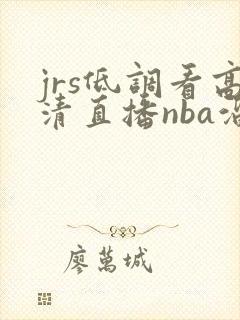 jrs低調看高
清直播nba沿
廖萬城